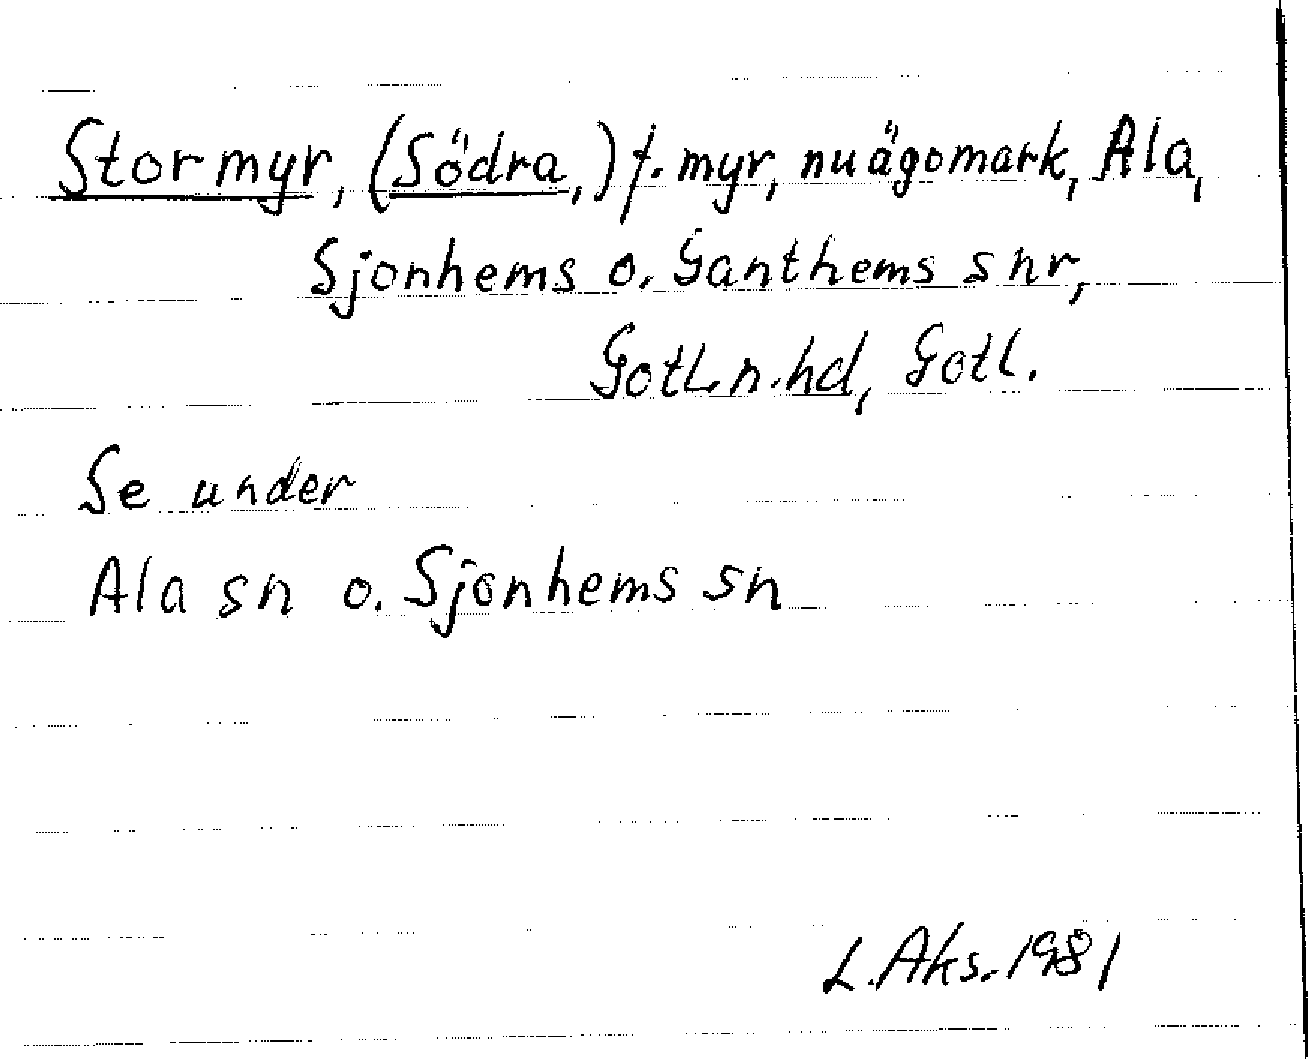 Stormyr, (Södra,) f. myr, nu ägomark, Ala,
Sjonhems o. Ganthems snr,
Gotl. n. hd, Gotl.
Se under
Ala sn o. Sjonhems sn
L. Aks. 1981